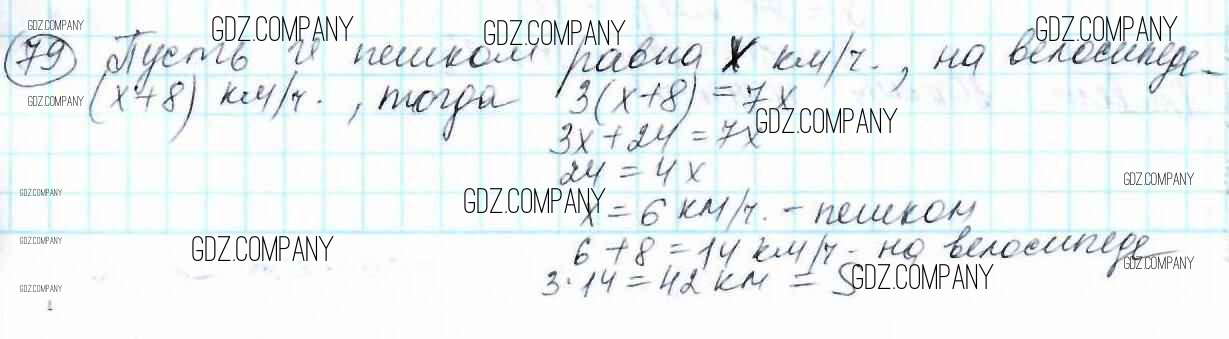 GDZ.COMPANY GDZ.COMPANY GDZ.COMPANY GDZ.COMPANY
79 Пусть υ пешком равна x км/ч., на велосипеде -
GDZ.COMPANY (x+8) км/ч., тогда 3(x+8) = 7x
GDZ.COMPANY
3x + 24 = 7x
24 = 4x
GDZ.COMPANY
GDZ.COMPANY GDZ.COMPANY
x = 6 км/ч. - пешком
GDZ.COMPANY GDZ.COMPANY
6 + 8 = 14 км/ч - на велосипеде
GDZ.COMPANY
3·14 = 42 км = S
GDZ.COMPANY GDZ.COMPANY